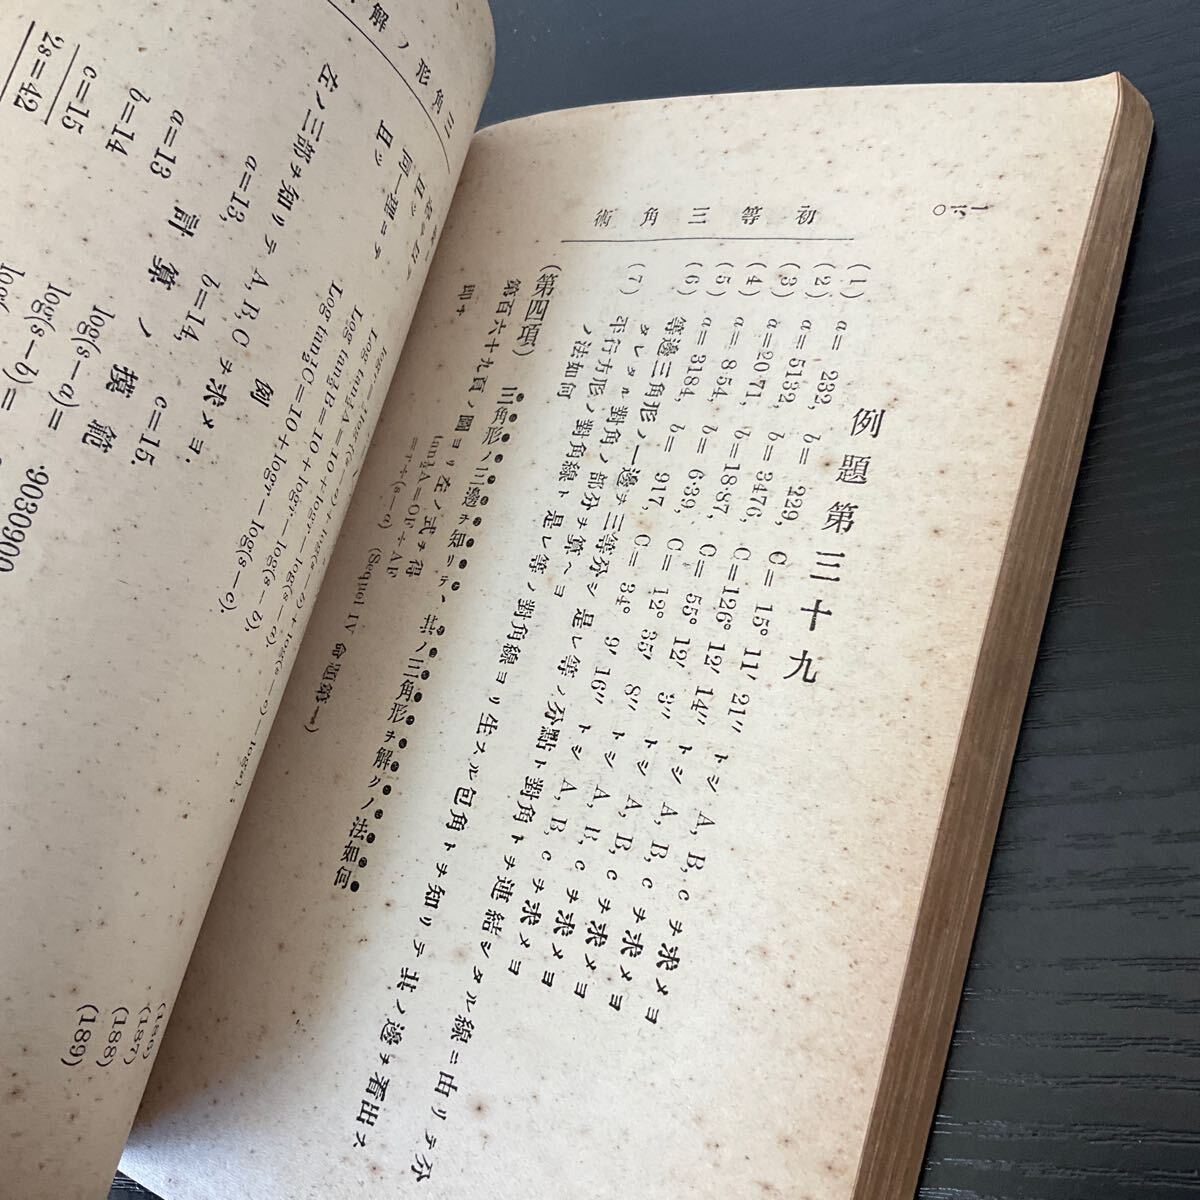 初等三角術
例題第三十九
(1) a= 232, b= 229, C= 15° 11′ 21″ トシ A, B, c ヲ求メヨ
(2) a=5132, b= 3476, C=126° 12′ 14″ トシ A, B, c ヲ求メヨ
(3) a=20·71, b=18·87, C= 55° 12′ 3″ トシ A, B, c ヲ求メヨ
(4) a= 8·54, b= 6·39, C= 12° 35′ 8″ トシ A, B, c ヲ求メヨ
(5) a=3184, b= 917, C= 34° 9′ 16″ トシ A, B, c ヲ求メヨ
(6) 等邊三角形ノ一邊ヲ三等分シ是レ等ノ分點ト對角トヲ連結シタル線ニ由リテ分
タレタル對角ノ部分ヲ算ヘヨ
(7) 平行方形ノ對角線ト是レ等ノ對角線ヨリ生スル包角トヲ知リテ其ノ邊ヲ看出ス
ノ法如何
(第四項) 三角形ノ三邊ヲ知リテ、其ノ三角形ヲ解クノ法如何
第百六十九頁ノ圖ヨリ左ノ式ヲ得
=r÷(s—a) (Sequel IV 命題第一)
即チ
三角形ノ解
同一理ニテ
且ツ
Log tan½B=10+logr—log(s—b),
Log tan½C=10+logr—log(s—c).
例
左ノ三部ヲ知リテ A, B, C ヲ求メヨ.
a=13, b=14, c=15.
計算ノ模範
a=13
b=14
c=15
2s=42
log(s—a)=
log(s—b)=
·9030900
(186)
(187)
(188)
(189)